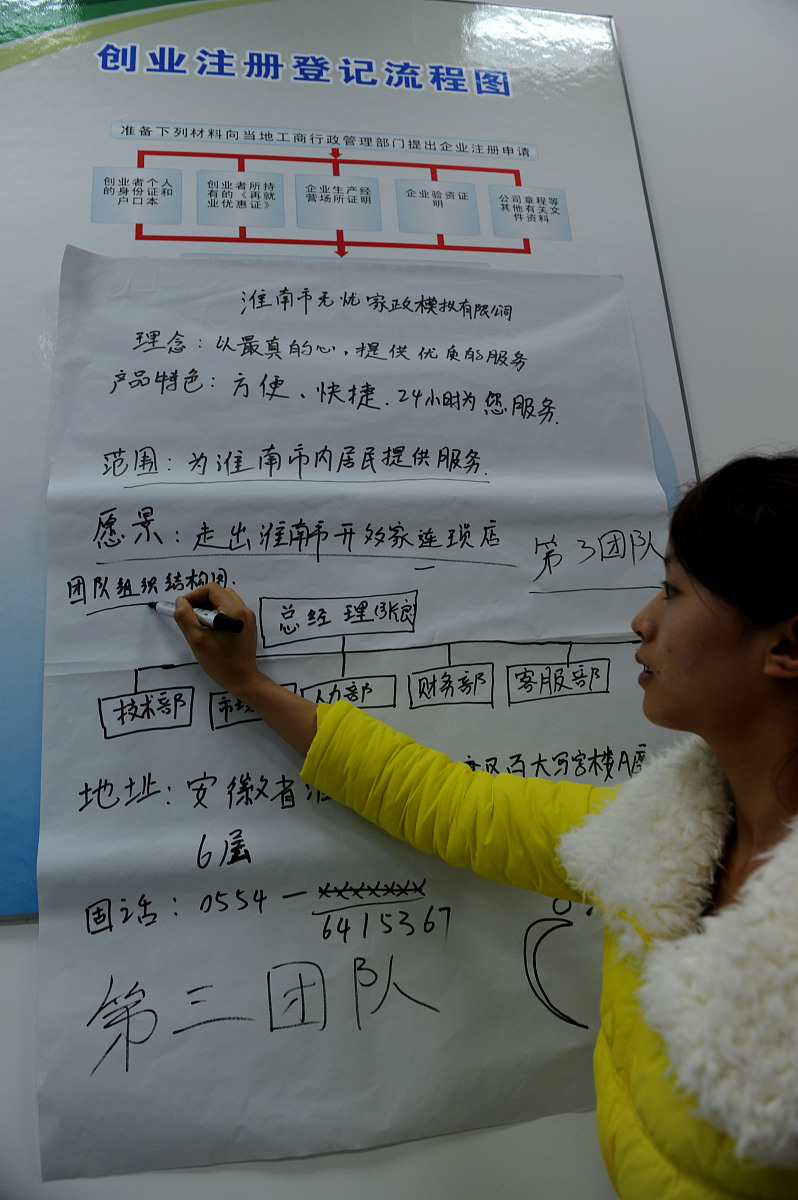 创业注册登记流程图
准备下列材料向当地工商行政管理部门提出企业注册申请
创业者个人
的身份证和
户口本
创业者所持
有的《再就
业优惠证》
企业生产经
营场所证明
企业验资证
明
公司章程等
其他有关文
件资料
淮南市无忧家政模拟有限公司
理念：以最真的心，提供优质的服务
产品特色：方便、快捷、24小时为您服务.
范围：为淮南市内居民提供服务.
愿景：走出淮南市开多家连锁店
第3团队
团队组织结构图.
总经理
技术部
市
人力部
财务部
客服部
地址：安徽省淮
区百大写字楼A座
6层
固话：0554—
6415367
第三团队